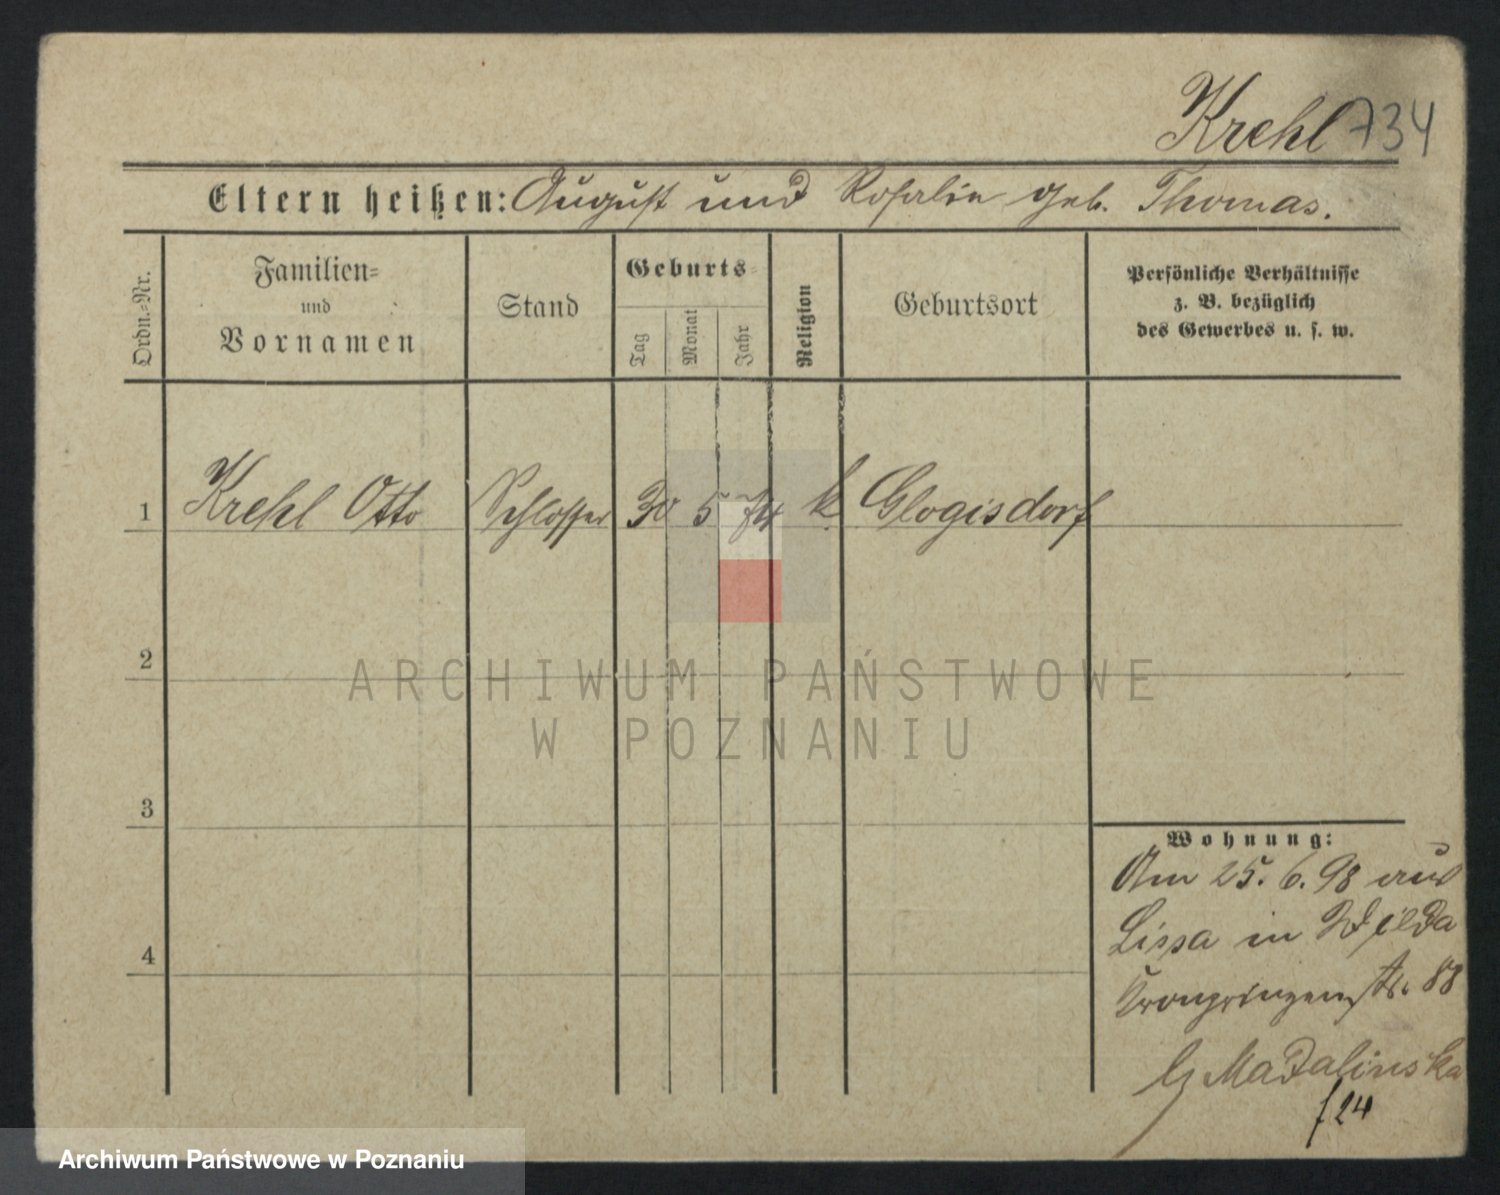 Krehl 734
Eltern heißen: August und Rosalie geb. Thomas.
Ordn.-Nr.
Familien- und Vornamen
Stand
Geburts-
Tag
Monat
Jahr
Religion
Geburtsort
Persönliche Verhältnisse
z. B. bezüglich
des Gewerbes u. s. w.
1 Krehl Otto Schlosser 30 5 74 k Glogisdorf
2
3
4
Wohnung:
Am 25. 6. 98 aus
Lissa in Wilda
Kronprinzenstr. 88
b/ Madalinska
f 24
ARCHIWUM PAŃSTWOWE
W POZNANIU
Archiwum Państwowe w Poznaniu